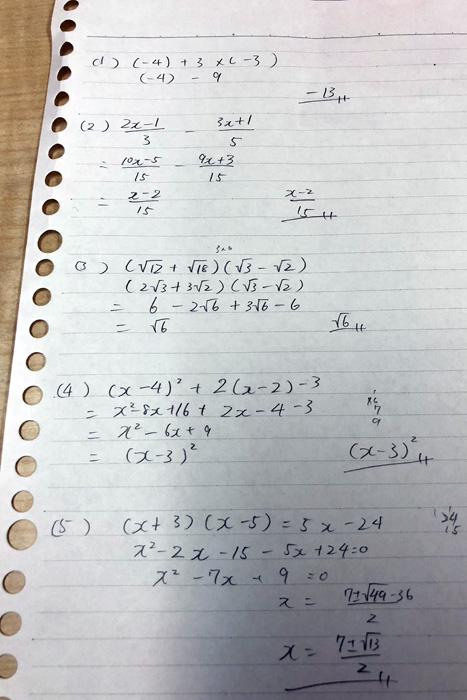 (1) (-4) + 3 × (-3)
(-4) - 9
-13
(2) \frac{2x-1}{3} - \frac{3x+1}{5}
= \frac{10x-5}{15} - \frac{9x+3}{15}
= \frac{x-2}{15}
\frac{x-2}{15}
(3) (√12 + √18)(√3 - √2)
(2√3 + 3√2)(√3 - √2)
= 6 - 2√6 + 3√6 - 6
= √6
√6
(4) (x-4)² + 2(x-2) - 3
= x² - 8x + 16 + 2x - 4 - 3
= x² - 6x + 9
= (x-3)²
(x-3)²
(5) (x+3)(x-5) = 5x - 24
x² - 2x - 15 - 5x + 24 = 0
x² - 7x + 9 = 0
x = \frac{7±√49-36}{2}
x = \frac{7±√13}{2}